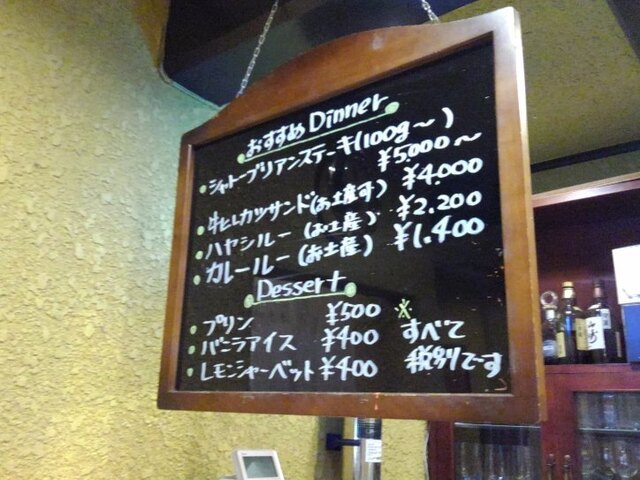 おすすめ Dinner
・シャトーブリアンステーキ(100g〜)
¥5.000〜
・牛ヒレカツサンド(お土産可) ¥4.000
・ハヤシルー(お土産) ¥2.200
・カレールー(お土産) ¥1.400
Dessert
・プリン ¥500
・バニラアイス ¥400
・レモンシャーベット ¥400
※
すべて
税別です